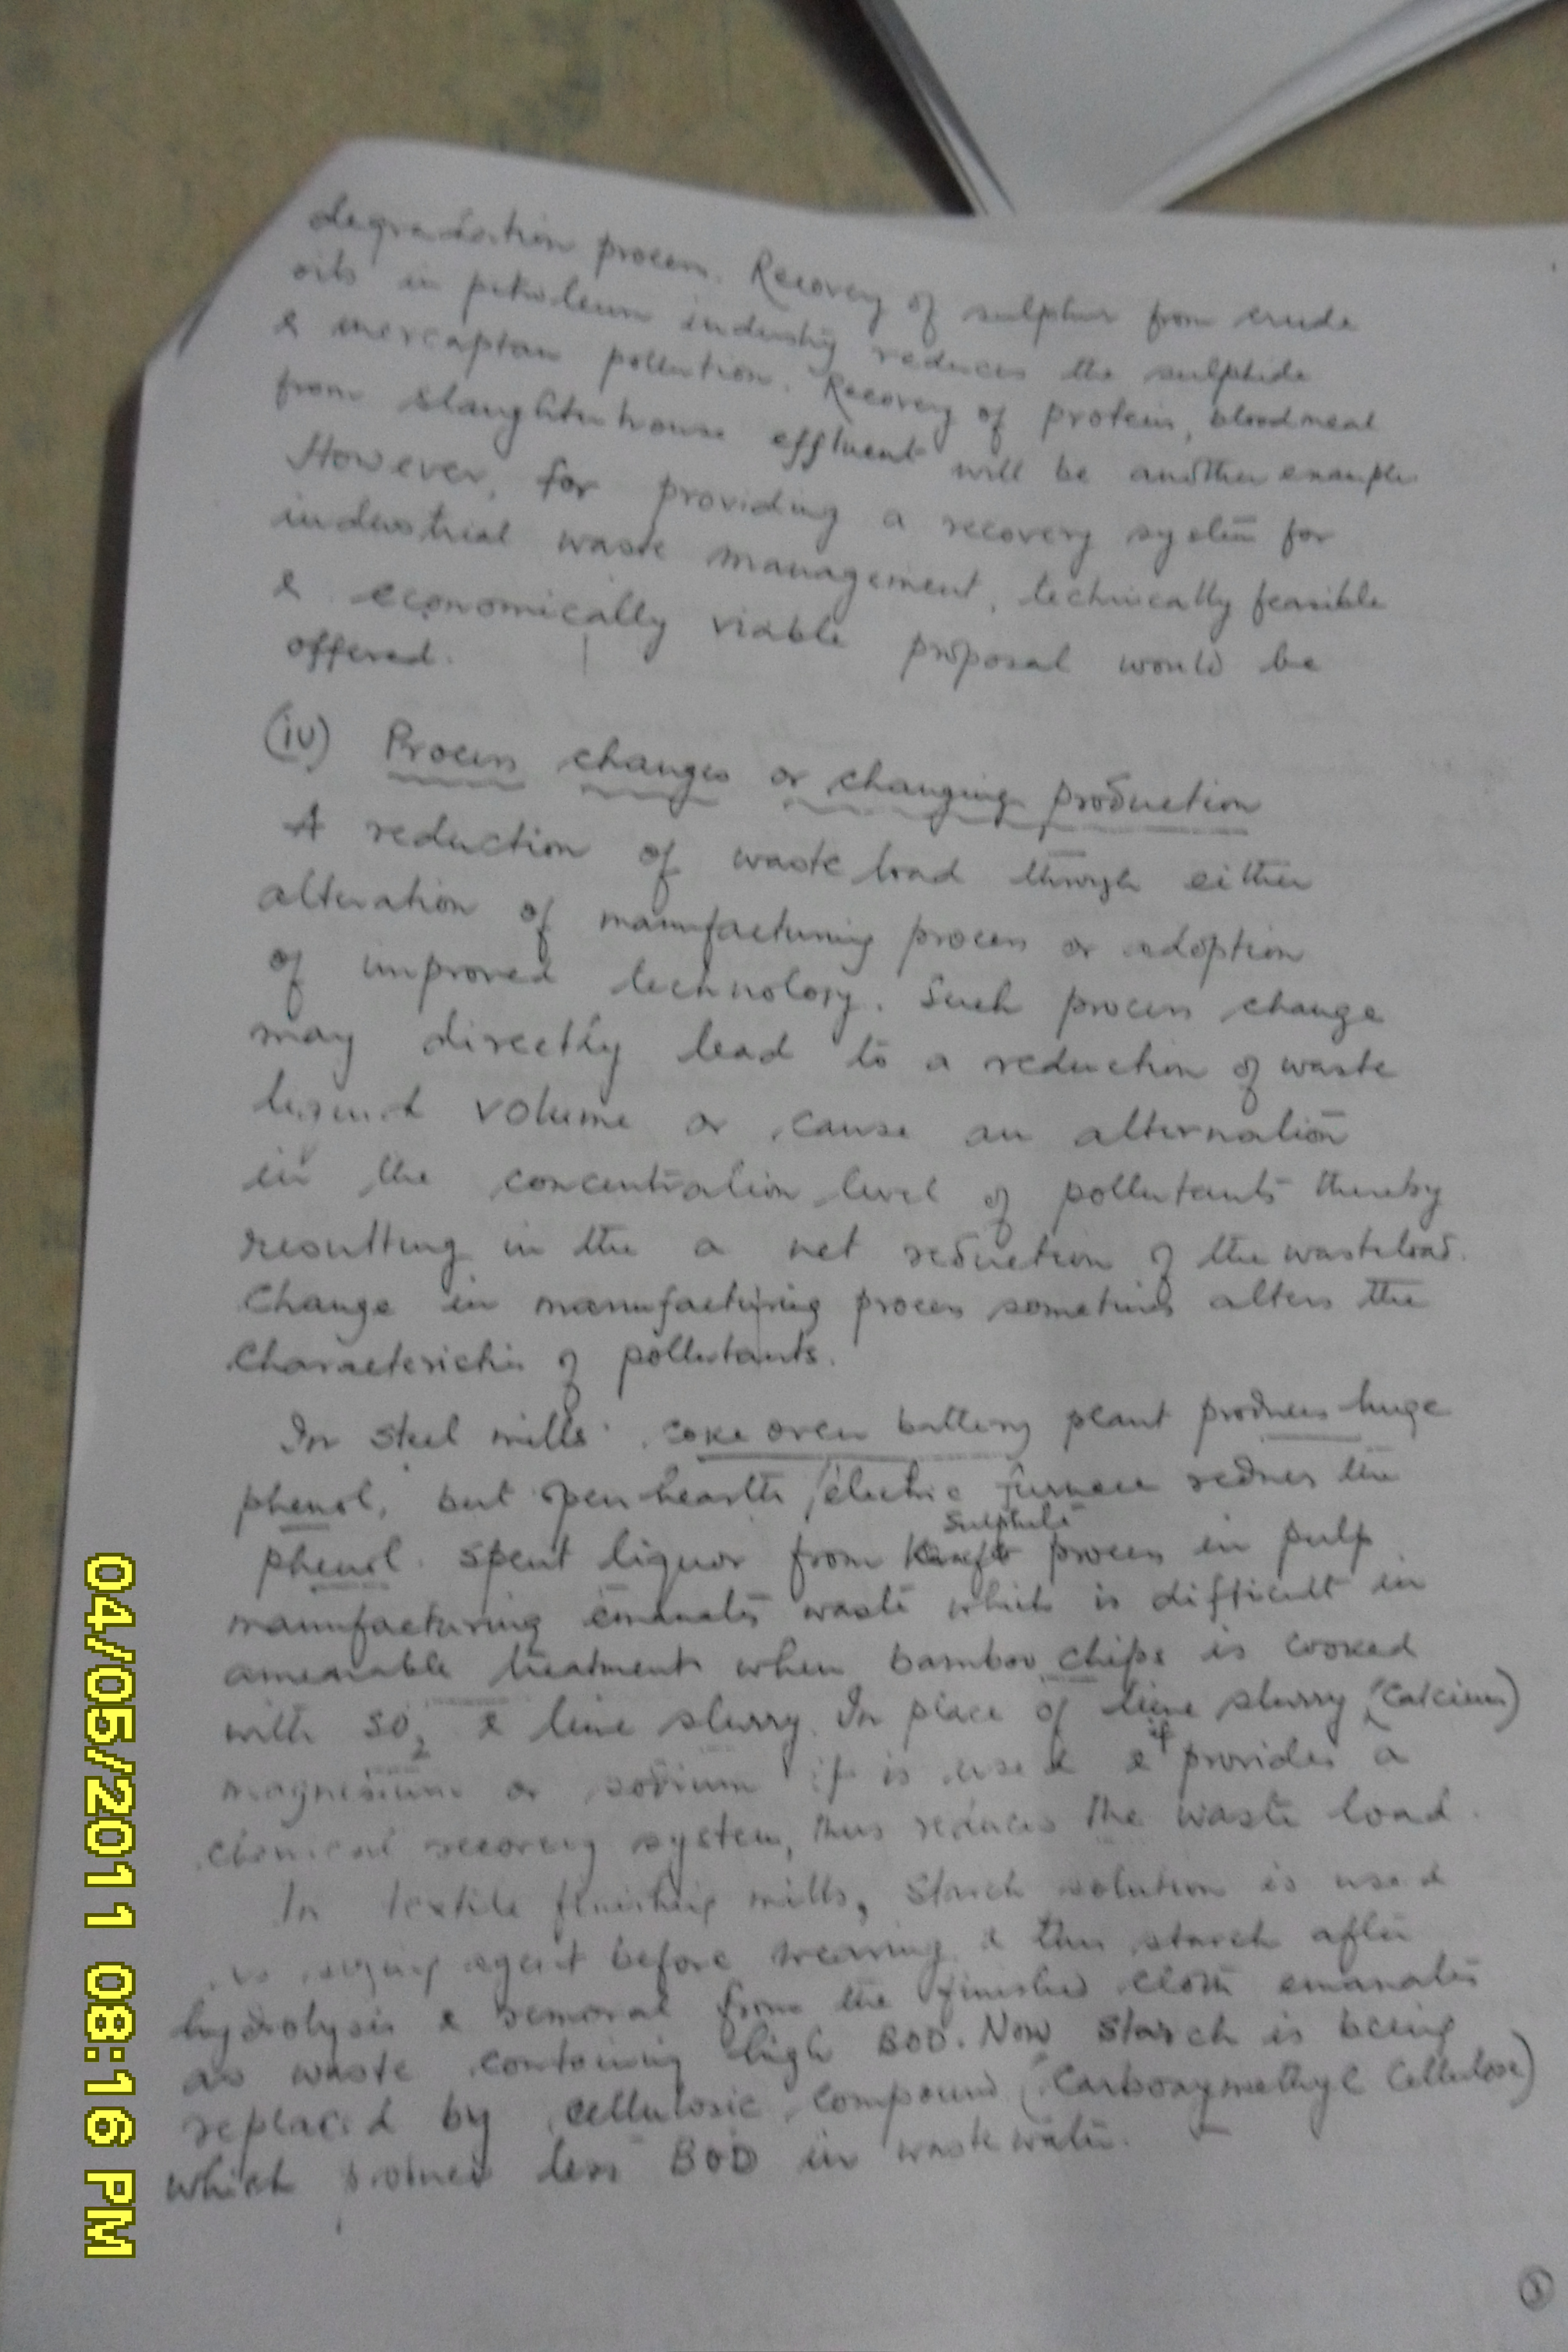 degradation process. Recovery of sulphur from crude
oils in petroleum industry reduces the sulphide
& mercaptan pollution. Recovery of protein, bloodmeal
from slaughterhouse effluent will be another example
However, for providing a recovery system for
industrial waste management, technically feasible
& economically viable proposal would be
offered.
(iv) Process changes or changing production
A reduction of waste load through either
alteration of manufacturing process or adoption
of improved technology. Such process change
may directly lead to a reduction of waste
liquid volume or cause an alternation
in the concentration level of pollutants thereby
resulting in the a net reduction of the wasteload.
Change in manufacturing process sometimes alters the
Characteristics of pollutants.
In steel mills coke oven battery plant produces huge
phenol, but open hearth / electric furnace reduces the
sulphite
phenol. Spent liquor from process in pulp
manufacturing emanates waste which is difficult in
amenable treatment when bamboo chips is cooked
with SO2 & lime slurry. In place of lime slurry (Calcium)
magnesium or sodium if is used & if provides a
chemical recovery system, thus reduces the waste load.
In textile finishing mills, Starch solution is used
as sizing agent before weaving & this starch after
hydrolysis & removal from the finished cloth emanates
as waste containing high BOD. Now starch is being
replaced by cellulosic compound (Carboxymethyl Cellulose)
which produces less BOD in wastewater.
04/05/2011 08:16 PM